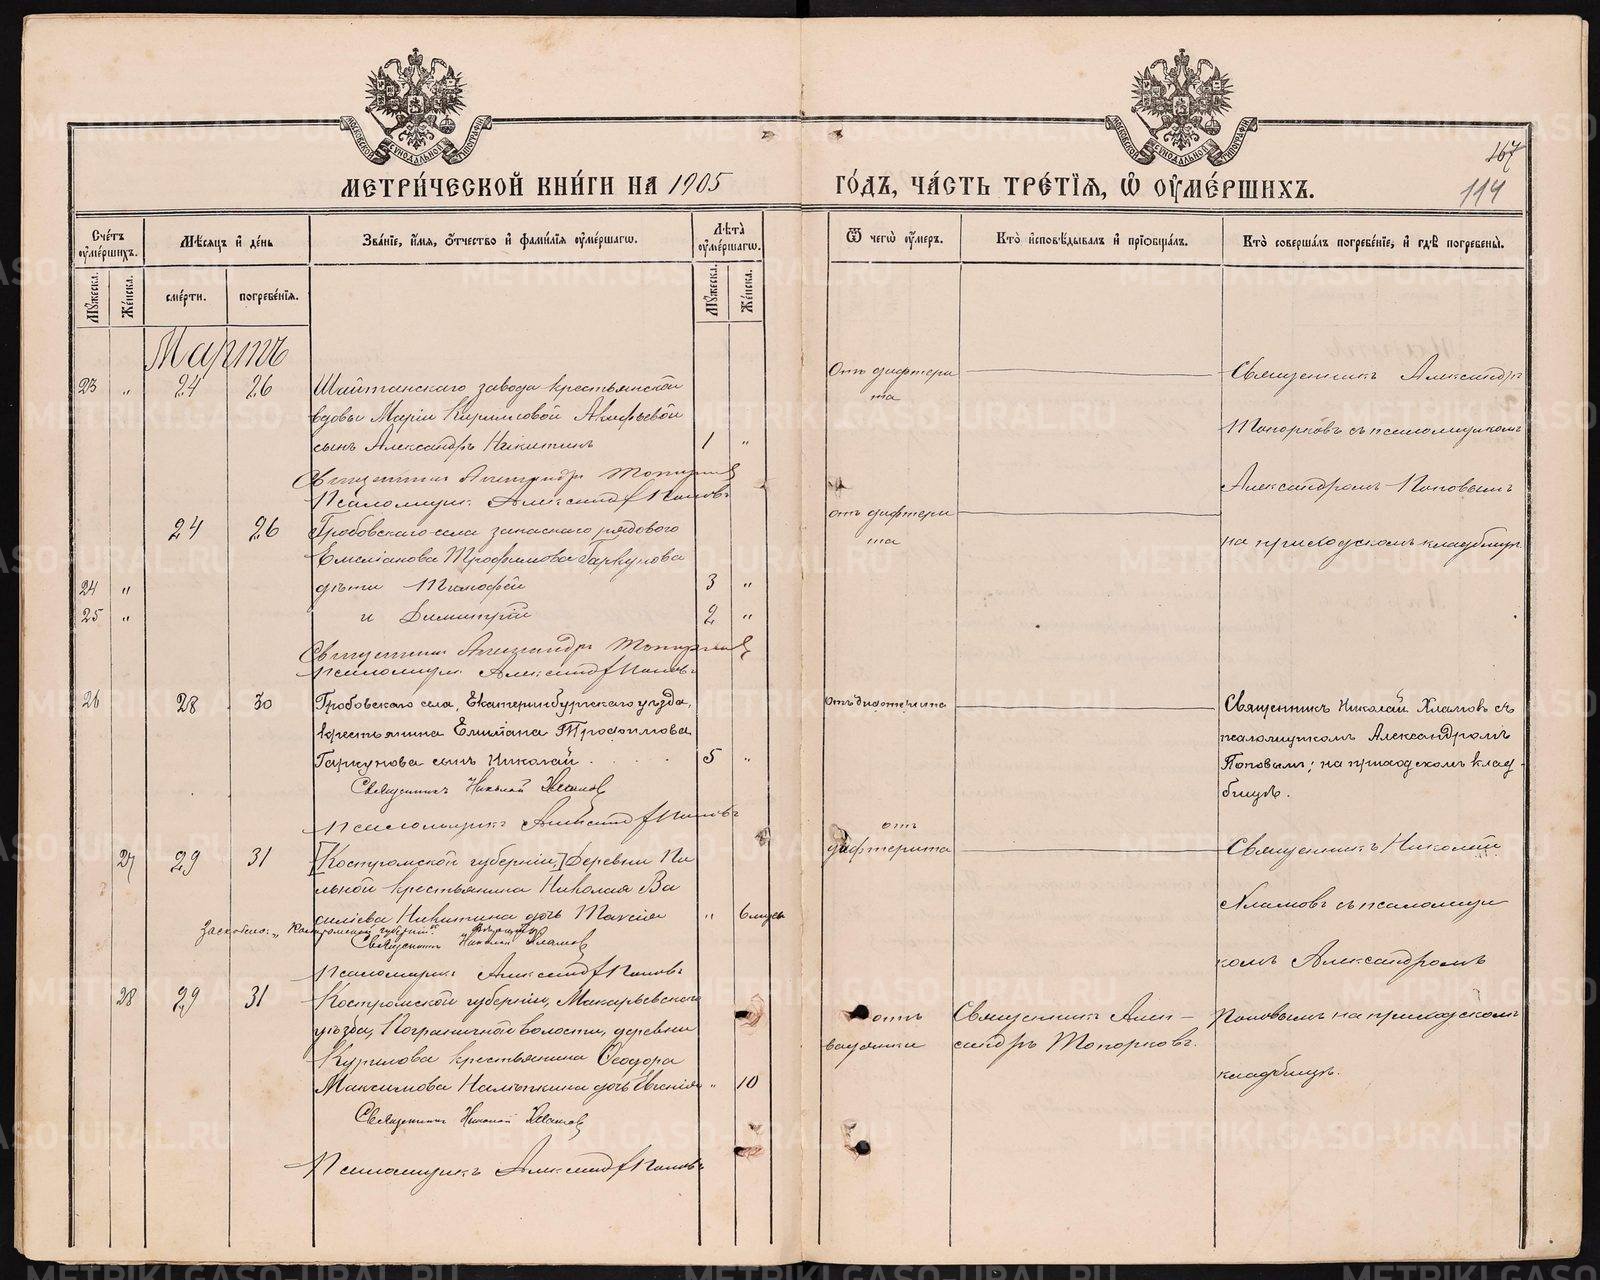 МЕТРИ́ЧЕСКОЙ КНИ́ГИ НА 1905
ГО́ДЪ, ЧА́СТЬ ТРЕ́ТІѦ, Ѡ҆ ОУ҆МЕ́РШИХЪ.
167
114
Сче́тъ оу҆ме́ршихъ.
Мѣ́сяцъ и҆ де́нь
Зва́нїе, и҆́мя, ѻ҆́тчество и҆ фами́лїя оу҆ме́ршагѡ.
Лѣ́та оу҆ме́ршагѡ.
Ѿ чегѡ̀ оу҆́меръ.
Кто̀ и҆сповѣ́дывалъ и҆ прїѡбща́лъ.
Кто̀ соверша́лъ погребе́нїе, и҆ гдѣ̀ погребены̀.
Мꙋ́жеска.
Же́нска.
сме́рти.
погребе́нїя.
Мꙋ́жеска.
Же́нска.
Мартъ
23 „ 24 26 Шайтанскаго завода крестьянской
вдовы Маріи Кирилловой Алферьевой
сынъ Александръ Никитинъ 1 „
Отъ дифтери
та
Священникъ Александръ
Топорковъ съ псаломщикомъ
Александромъ Поповымъ
на приходскомъ кладбищѣ
Священникъ Александръ Топорковъ
Псаломщикъ Александръ Поповъ
24 26 Гробовскаго села запаснаго рядового
Емелианова Трофимова Гаркунова
24 „ дѣти Тимофей 3 „
25 „ и Димитрій 2 „
отъ дифтери
та
Священникъ Александръ Топорковъ
Псаломщикъ Александръ Поповъ
26 28 30 Гробовскаго села, Екатеринбургскаго уѣзда,
крестьянина Емиліана Трофимова
Гаркунова сынъ Николай 5 „
отъ дифтерита
Священникъ Николай Хламовъ съ
псаломщикомъ Александромъ
Поповымъ; на приходскомъ клад-
бищѣ.
Священникъ Николай Хламовъ
Псаломщикъ Александръ Поповъ
27 29 31 [Костромской губерніи,] Деревни Пи
льной крестьянина Николая Ва
силіева Никитина дочь Таисія „ 6 мѣсъ
отъ
дифтерита
Священникъ Николай
Хламовъ съ псаломщи
комъ Александромъ
Поповымъ на приходскомъ
кладбищѣ.
Заскоблено: „Костромской губерніи"
Священникъ Николай Хламовъ
Псаломщикъ Александръ Поповъ
28 29 31 Костромской губерніи, Макарьевскаго
уѣзда, Пограничной волости, деревни
Курилова крестьянина Ѳеодора
Максимова дочь Евгенія „ 10
отъ
Священникъ Алек-
сандръ Топорковъ.
Священникъ Николай Хламовъ
Псаломщикъ Александръ Поповъ